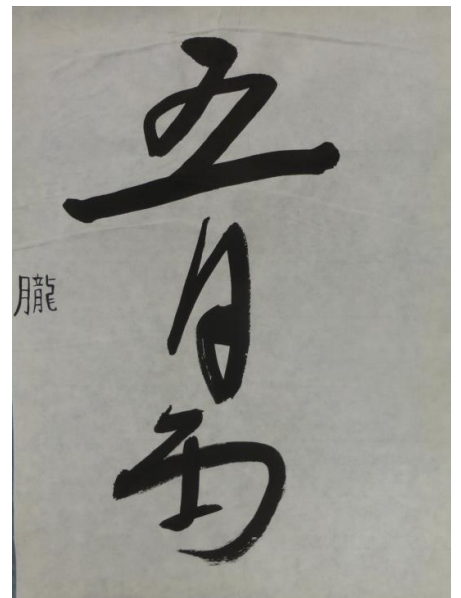 五月雨
朧